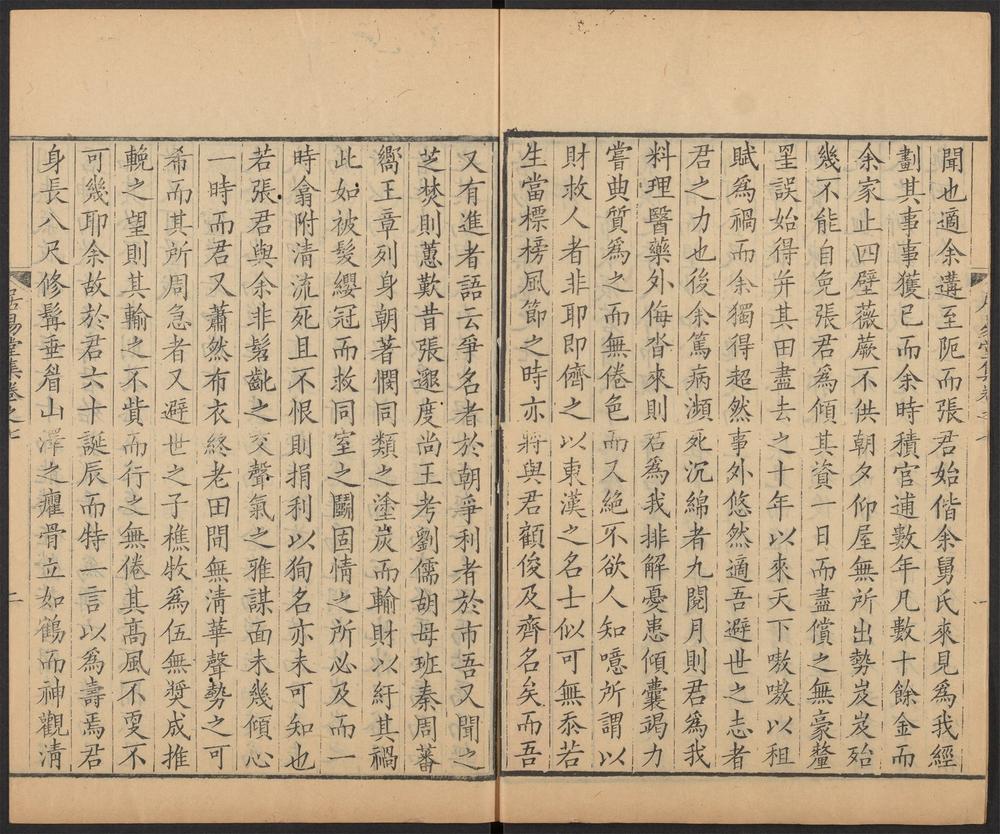 聞也適余遘至阨而張君始偕余舅氏來見爲我經
劃其事事獲已而余時積官逋數年凡數十餘金而
余家止四壁薇蕨不供朝夕仰屋無所出勢岌岌殆
幾不能自免張君爲傾其資一日而盡償之無豪釐
罣誤始得并其田盡去之十年以來天下嗷嗷以租
賦爲禍而余獨得超然事外悠然適吾避世之志者
君之力也後余篤病瀕死沉綿者九閱月則君爲我
料理醫藥外侮沓來則君爲我排解憂患傾囊竭力
嘗典質爲之而無倦色而又絕不欲人知噫所謂以
財救人者非耶即儕之以東漢之名士似可無忝若
生當標榜風節之時亦將與君顧俊及齊名矣而吾
又有進者語云爭名者於朝爭利者於市吾又聞之
芝焚則蕙歎昔張邈度尚王考劉儒胡母班秦周蕃
嚮王章列身朝著憫同類之塗炭而輸財以紓其禍
此如被髮纓冠而救同室之鬭固情之所必及而一
時翕附清流死且不恨則捐利以狥名亦未可知也
若張君與余非髫齔之交聲氣之雅謀面未幾傾心
一時而君又蕭然布衣終老田間無清華聲勢之可
希而其所周急者又避世之子樵牧爲伍無奬成推
輓之望則其輸之不貲而行之無倦其高風不更不
可幾耶余故於君六十誕辰而特一言以爲壽焉君
身長八尺修髯垂眥山澤之癯骨立如鶴而神觀清
居易堂集卷之七